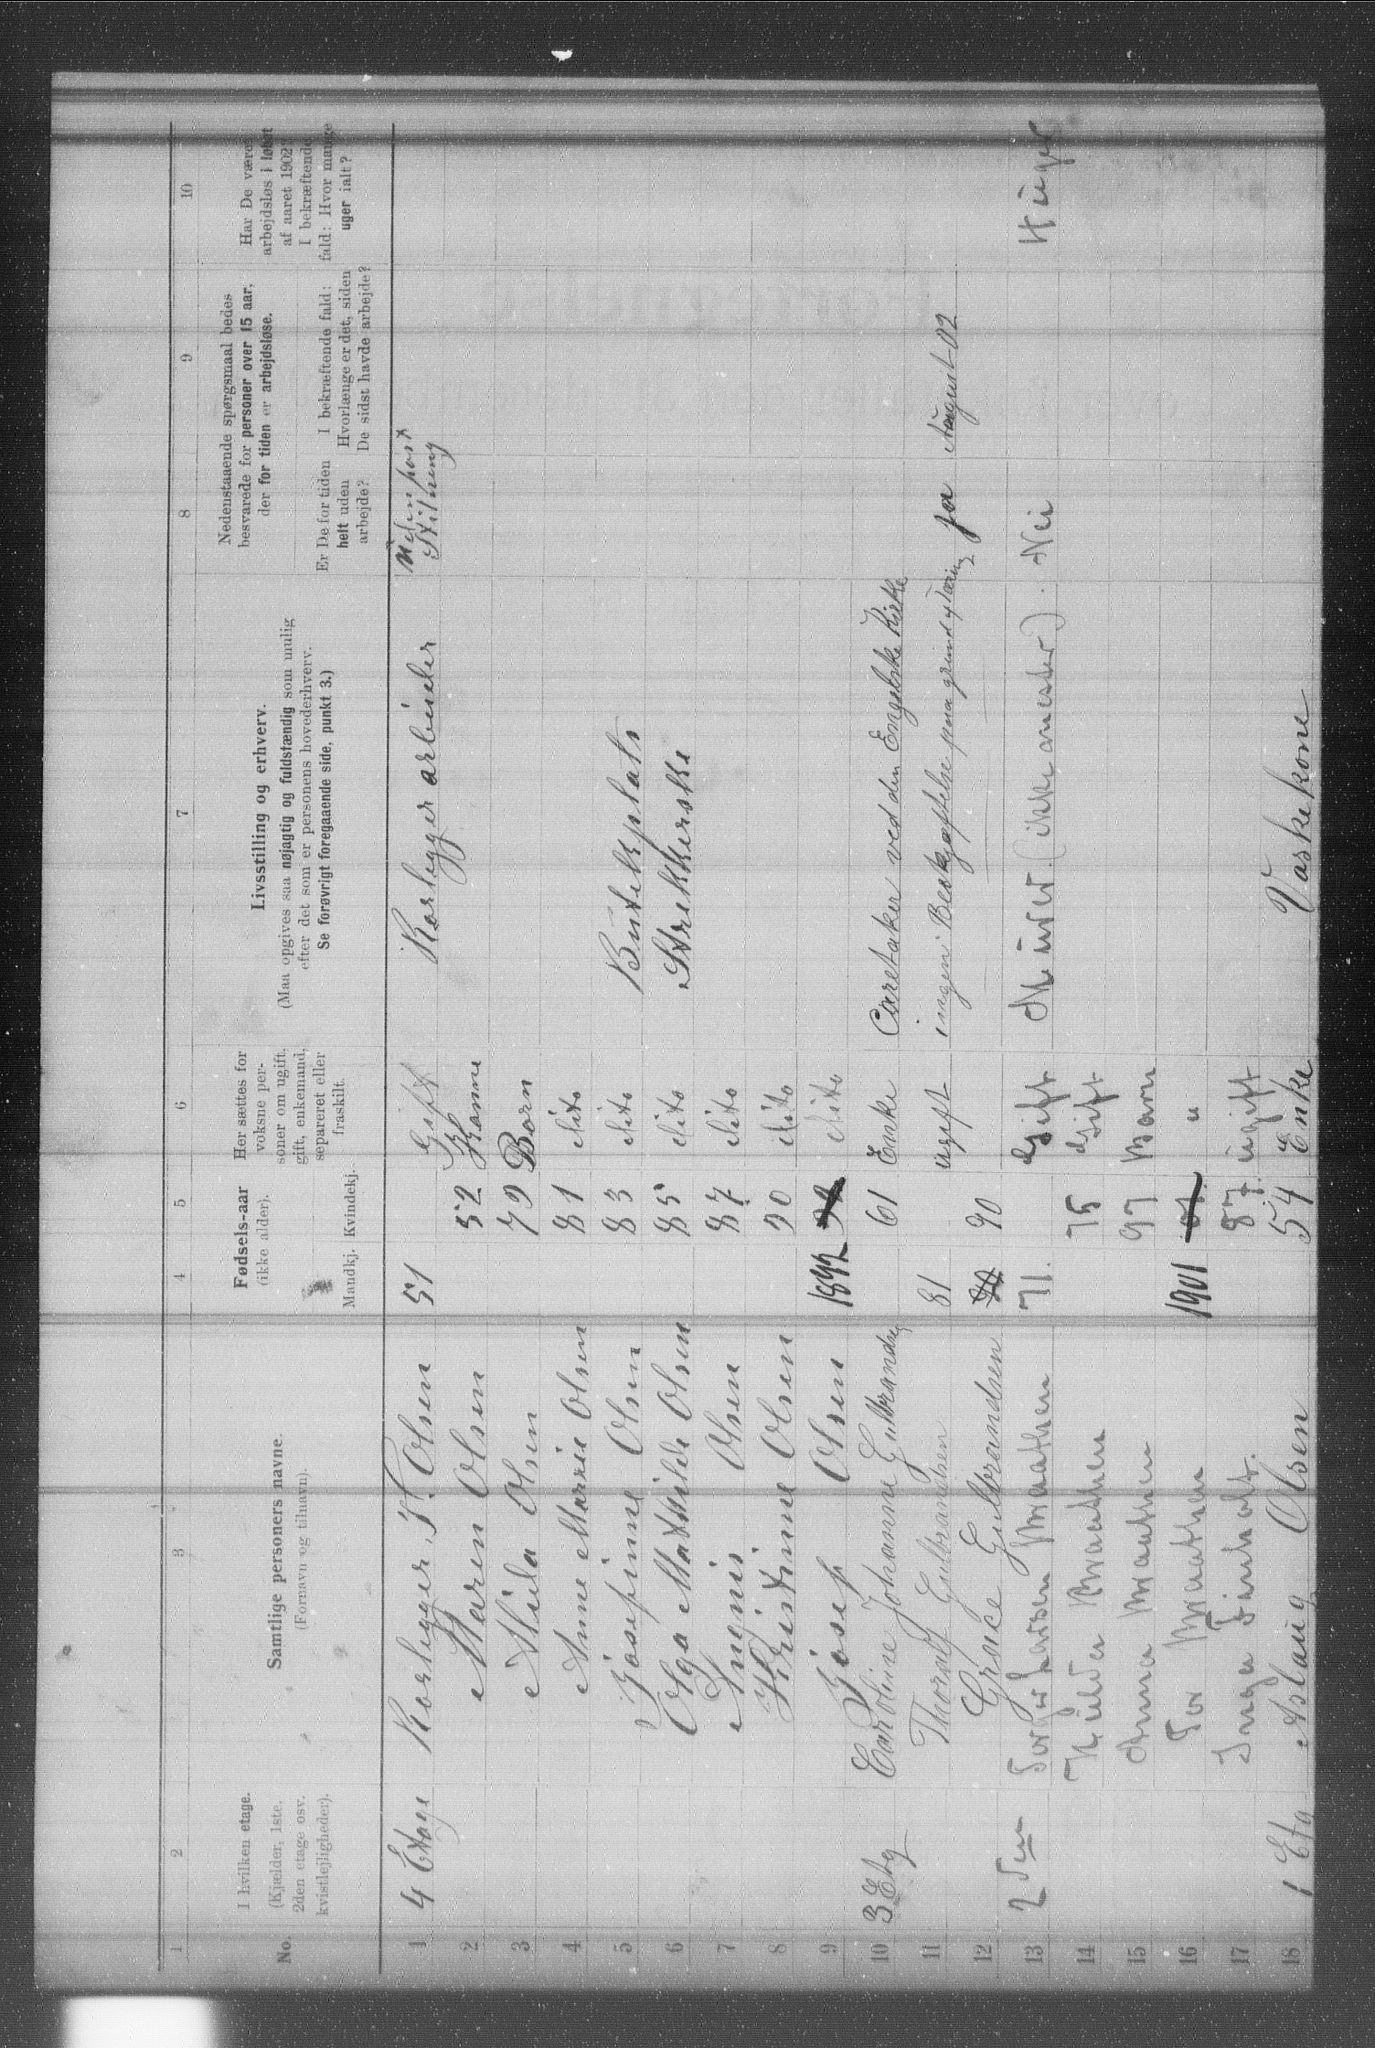 1 2 3 4 5 6 7 8 9 10
No.
I hvilken etage.
(Kjælder, 1ste.
2den etage osv.
kvistlejligheder).
Samtlige personers navne.
(Fornavn og tilnavn).
Fødsels-aar
(ikke alder).
Mandkj. Kvindekj.
Her sættes for
voksne per-
soner om ugift,
gift, enkemand,
separeret eller
fraskilt.
Livsstilling og erhverv.
(Maa opgives saa nøjagtig og fuldstændig som mulig
efter det som er personens hovederhverv.
Se forøvrigt foregaaende side, punkt 3.)
Nedenstaaende spørgsmaal bedes
besvarede for personer over 15 aar,
der for tiden er arbejdsløse.
Er De for tiden
helt uden
arbejde?
I bekræftende fald:
Hvorlænge er det, siden
De sidst havde arbejde?
Har De været
arbejdsløs i løbet
af aaret 1902?
I bekræftende
fald: Hvor mange
uger ialt?
1 4 Etage Rørlegger H. Olsen 51 Gift Rørlegger arbeider Uden fast Stilling
2 Maren Olsen 52 Konne
3 Milda Olsen 79 Børn
4 Anne Marrie Olsen 81 dito
5 Josefinne Olsen 83 dito Butikplats
6 Olga Mathilde Olsen 85 dito Strikkerske
7 Angnis Olsen 87 dito
8 Kristinne Olsen 90 dito
9 Josef Olsen 1892 92 dito
10 3 Etg Caroline Johanne Gulbrandsen 61 Enke Caretaker ved den Engelske Kirke
11 Thoralf Gulbrandsen 81 ugift ingen Beskjæftelse paa grund ja August 02
12 Grace Gulbrandsen 90 90
13 2den Torger Larsen Braathen 71. Gift Murer (ikke mester). Nei uger
14 Hilda Braathen 75 Gift
15 Anna Braathen 97 Barn
16 Tor Braathen 1901 01. "
17 Inga Finholt. 87. ugift
18 1 Etg Aslaug Olsen 54 Enke Vaskekone